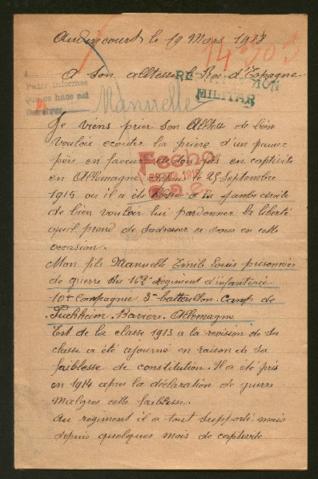 Audincourt le 19 Mars 1918
A son altesse le Roi d'Espagne
MILITAR
Manuelle
Je viens prier son Altesse de bien
vouloir écouter la prière d'un pauvre
père en faveur de son fils en captivité
en Allemagne depuis le 25 Septembre
1915 où il a été blessé à la jambe droite
de bien vouloir lui pardonner la liberté
qu'il prend de s'adresser à vous en cette
occasion.
Mon fils Manuelle Louis prisonnier
de guerre du régiment d'infanterie
10e Compagnie 3e bataillon Camp de
Puchheim Bavière Allemagne
Est de la classe 1913 a la revision de sa
classe a été ajourné en raison de sa
faiblesse de constitution. Il a été pris
en 1914 après la déclaration de guerre
malgrès cette faiblesse.
Au régiment il a tout supporté mais
depuis quelques mois de captivité